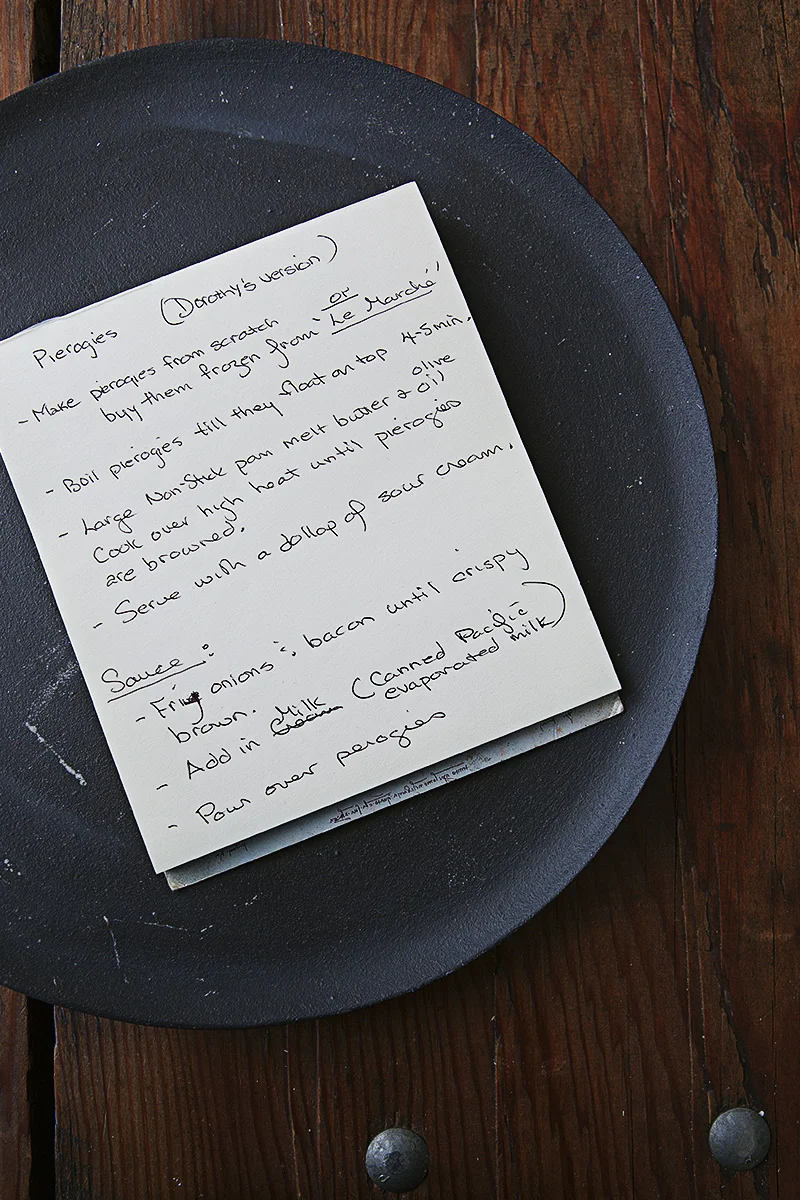 Pierogies (Dorothy's version)
- Make pierogies from scratch or
buy them frozen from "Le Marché"
- Boil pierogies till they float on top 4-5 min.
- Large Non-Stick pan melt butter & olive oil)
Cook over high heat until pierogies
are browned.
- Serve with a dollop of sour cream.
Sauce:
- Fry onions & bacon until crispy
brown.
- Add in Milk (Canned Pacific
evaporated milk)
- Pour over perogies